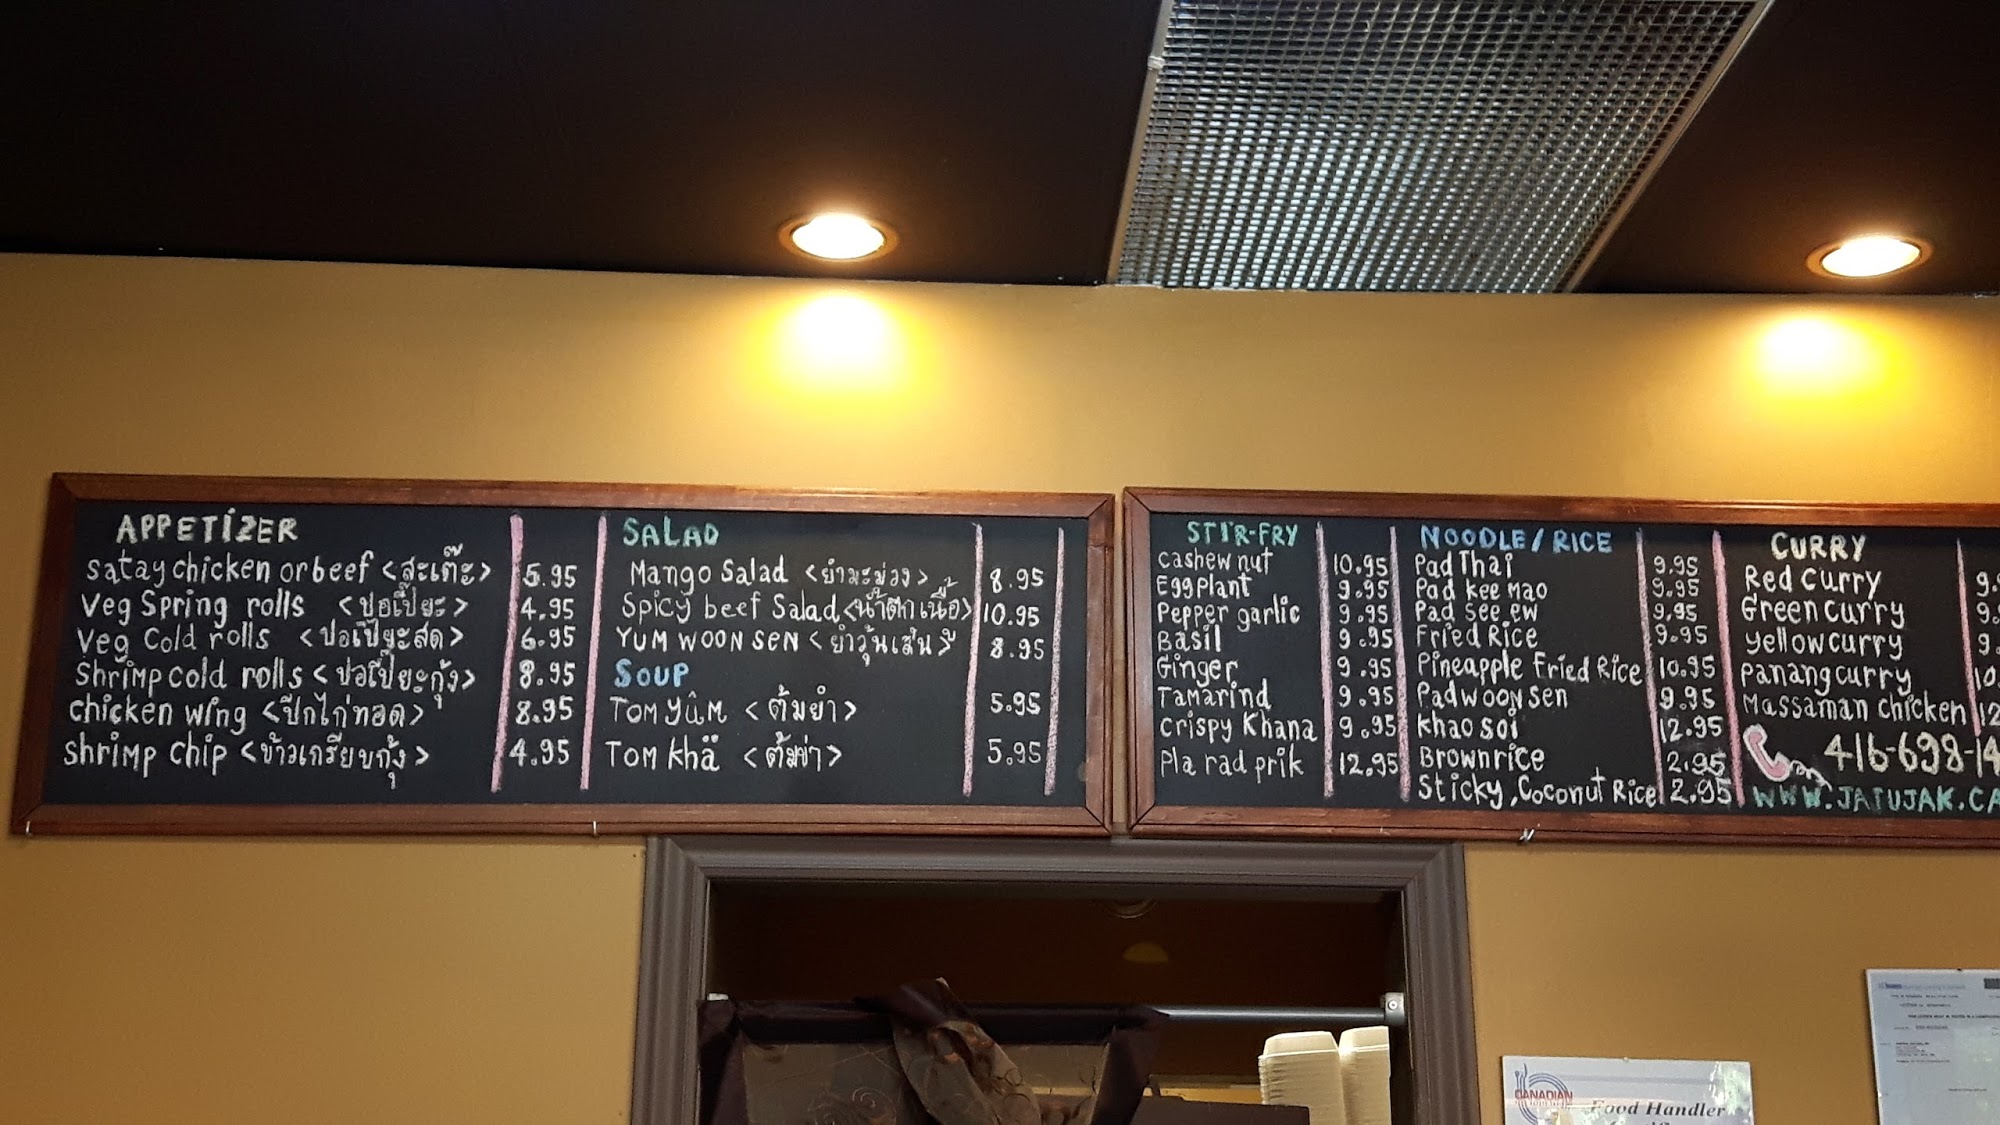 APPETIZER
satay chicken or beef <สะเต๊ะ> 5.95
Veg Spring rolls <ปอเปี๊ยะ> 4.95
Veg Cold rolls <ปอเปี๊ยะสด> 6.95
Shrimp cold rolls <ปอเปี๊ยะกุ้ง> 8.95
chicken wing <ปีกไก่ทอด> 8.95
shrimp chip <ข้าวเกรียบกุ้ง> 4.95
SALAD
Mango Salad <ยำมะม่วง> 8.95
Spicy beef Salad <น้ำตกเนื้อ> 10.95
YUM WOON SEN <ยำวุ้นเส้น> 8.95
SOUP
TOM YÛM <ต้มยำ> 5.95
TOM Khä <ต้มข่า> 5.95
STIR-FRY
Cashew nut 10.95
Eggplant 9.95
Pepper garlic 9.95
Basil 9.95
Ginger 9.95
Tamarind 9.95
Crispy Khana 9.95
Pla rad prik 12.95
NOODLE / RICE
Pad Thai 9.95
Pad kee mao 9.95
Pad see ew 9.95
Fried Rice 9.95
Pineapple Fried Rice 10.95
Pad woon sen 9.95
Khao soi 12.95
Brown rice 2.95
Sticky, Coconut Rice 2.95
CURRY
Red Curry 9.
Green curry 9.
yellow curry 9.
panang curry 10.
Massaman chicken 12
416-698-14
WWW.JATUJAK.CA
CANADIAN
Food Handler